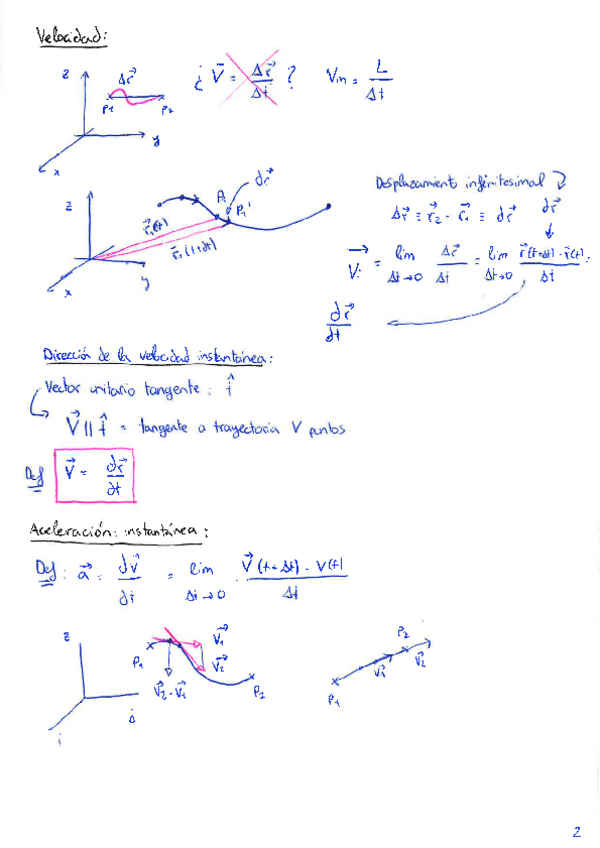 Velocidad:
z Δr⃗ P1 P2 y x
¿ V⃗ = Δr⃗/Δt ? Vm = L/Δt
z P1 P1' dr⃗ r⃗1(t) r⃗2(t+dt) y x
Desplazamiento infinitesimal
Δr⃗ ≡ r⃗2 - r⃗1 ≡ dr⃗ dr⃗
V⃗i = lim Δt→0 Δr⃗/Δt = lim Δt→0 r⃗(t+Δt)-r⃗(t)/Δt =
dr⃗/dt
Dirección de la velocidad instantánea:
Vector unitario tangente: t̂
V⃗ || t̂ = tangente a trayectoria ∀ puntos
Def V⃗ = dr⃗/dt
Aceleración: instantánea:
Def: a⃗ = dv⃗/dt = lim Δt→0 V⃗(t+Δt) - V(t)/Δt
z P1 V⃗1 V⃗2 V⃗2-V⃗1 P2
P1 V⃗1 P2 V⃗2
2